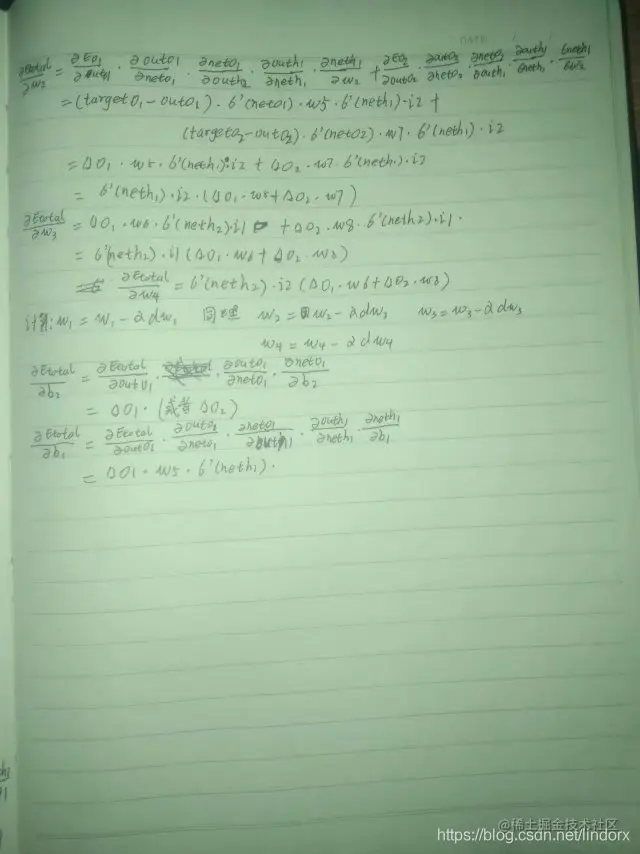 ∂Etotal/∂w2 = ∂Eo1/∂outo1 · ∂outo1/∂neto1 · ∂neto1/∂outh2 · ∂outh1/∂neth1 · ∂neth1/∂w2 + ∂Eo2/∂outo2 · ∂outo2/∂neto2 · ∂neto2/∂outh1 · ∂outh1/∂neth1 · ∂neth1/∂w2
= (targetO1 - outO2) · 6'(neto1) · w5 · 6'(neth1) · i2 +
(targeto2 - outO2) · 6'(netO2) · w7 · 6'(neth1) · i2
= ΔO1 · w5 · 6'(neth1) · i2 + ΔO2 · w7 · 6'(neth1) · i2
= 6'(neth1) · i2 · (ΔO1 · w5 + ΔO2 · w7)
∂Etotal/∂w3 = ΔO1 · w6 · 6'(neth2) · i1 + ΔO2 · w8 · 6'(neth2) · i1 ·
= 6'(neth2) · i1 (ΔO1 · w6 + ΔO2 · w8)
∂Etotal/∂w4 = 6'(neth2) · i2 (ΔO1 · w6 + ΔO2 · w8)
计算: w1 = w1 - 2dw1 同理 w2 = w2 - 2dw2 w3 = w3 - 2dw3
w4 = w4 - 2dw4
∂Etotal/∂b2 = ∂Etotal/∂outo1 · ∂outo1/∂neto1 · ∂neto1/∂b2
= ΔO1 · (或者 ΔO2)
∂Etotal/∂b1 = ∂Etotal/∂outo1 · ∂outo2/∂neto1 · ∂neto1/∂outh1 · ∂outh1/∂neth1 · ∂neth1/∂b1
= ΔO1 · w5 · 6'(neth1) ·
@稀土掘金技术社区
https://blog.csdn.net/lindorx